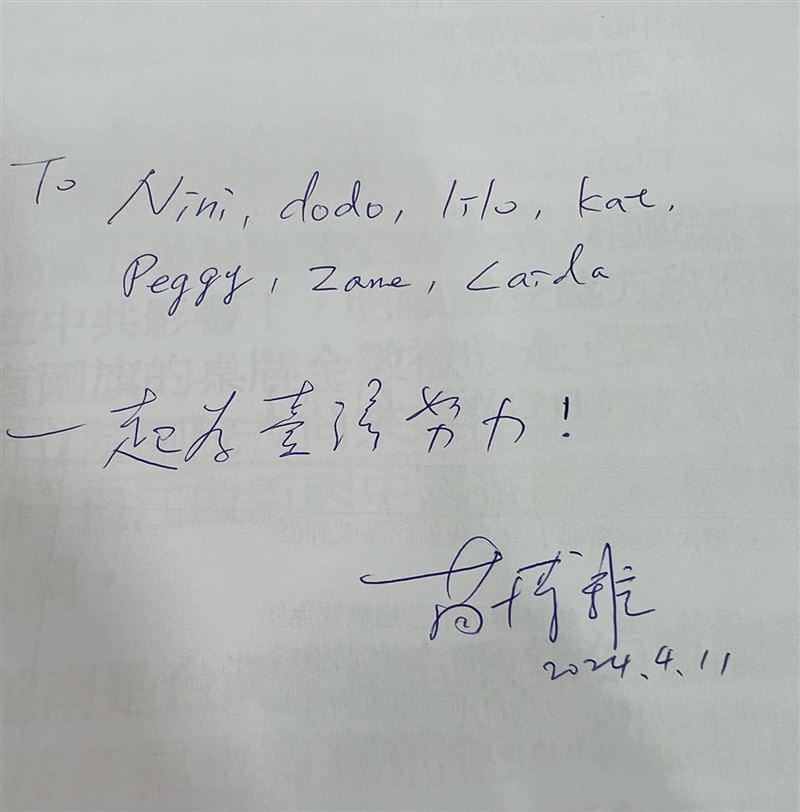 To Nini, dodo, lilo, kat,
Peggy, Zane, Carda
一起為臺灣努力!
2024.4.11